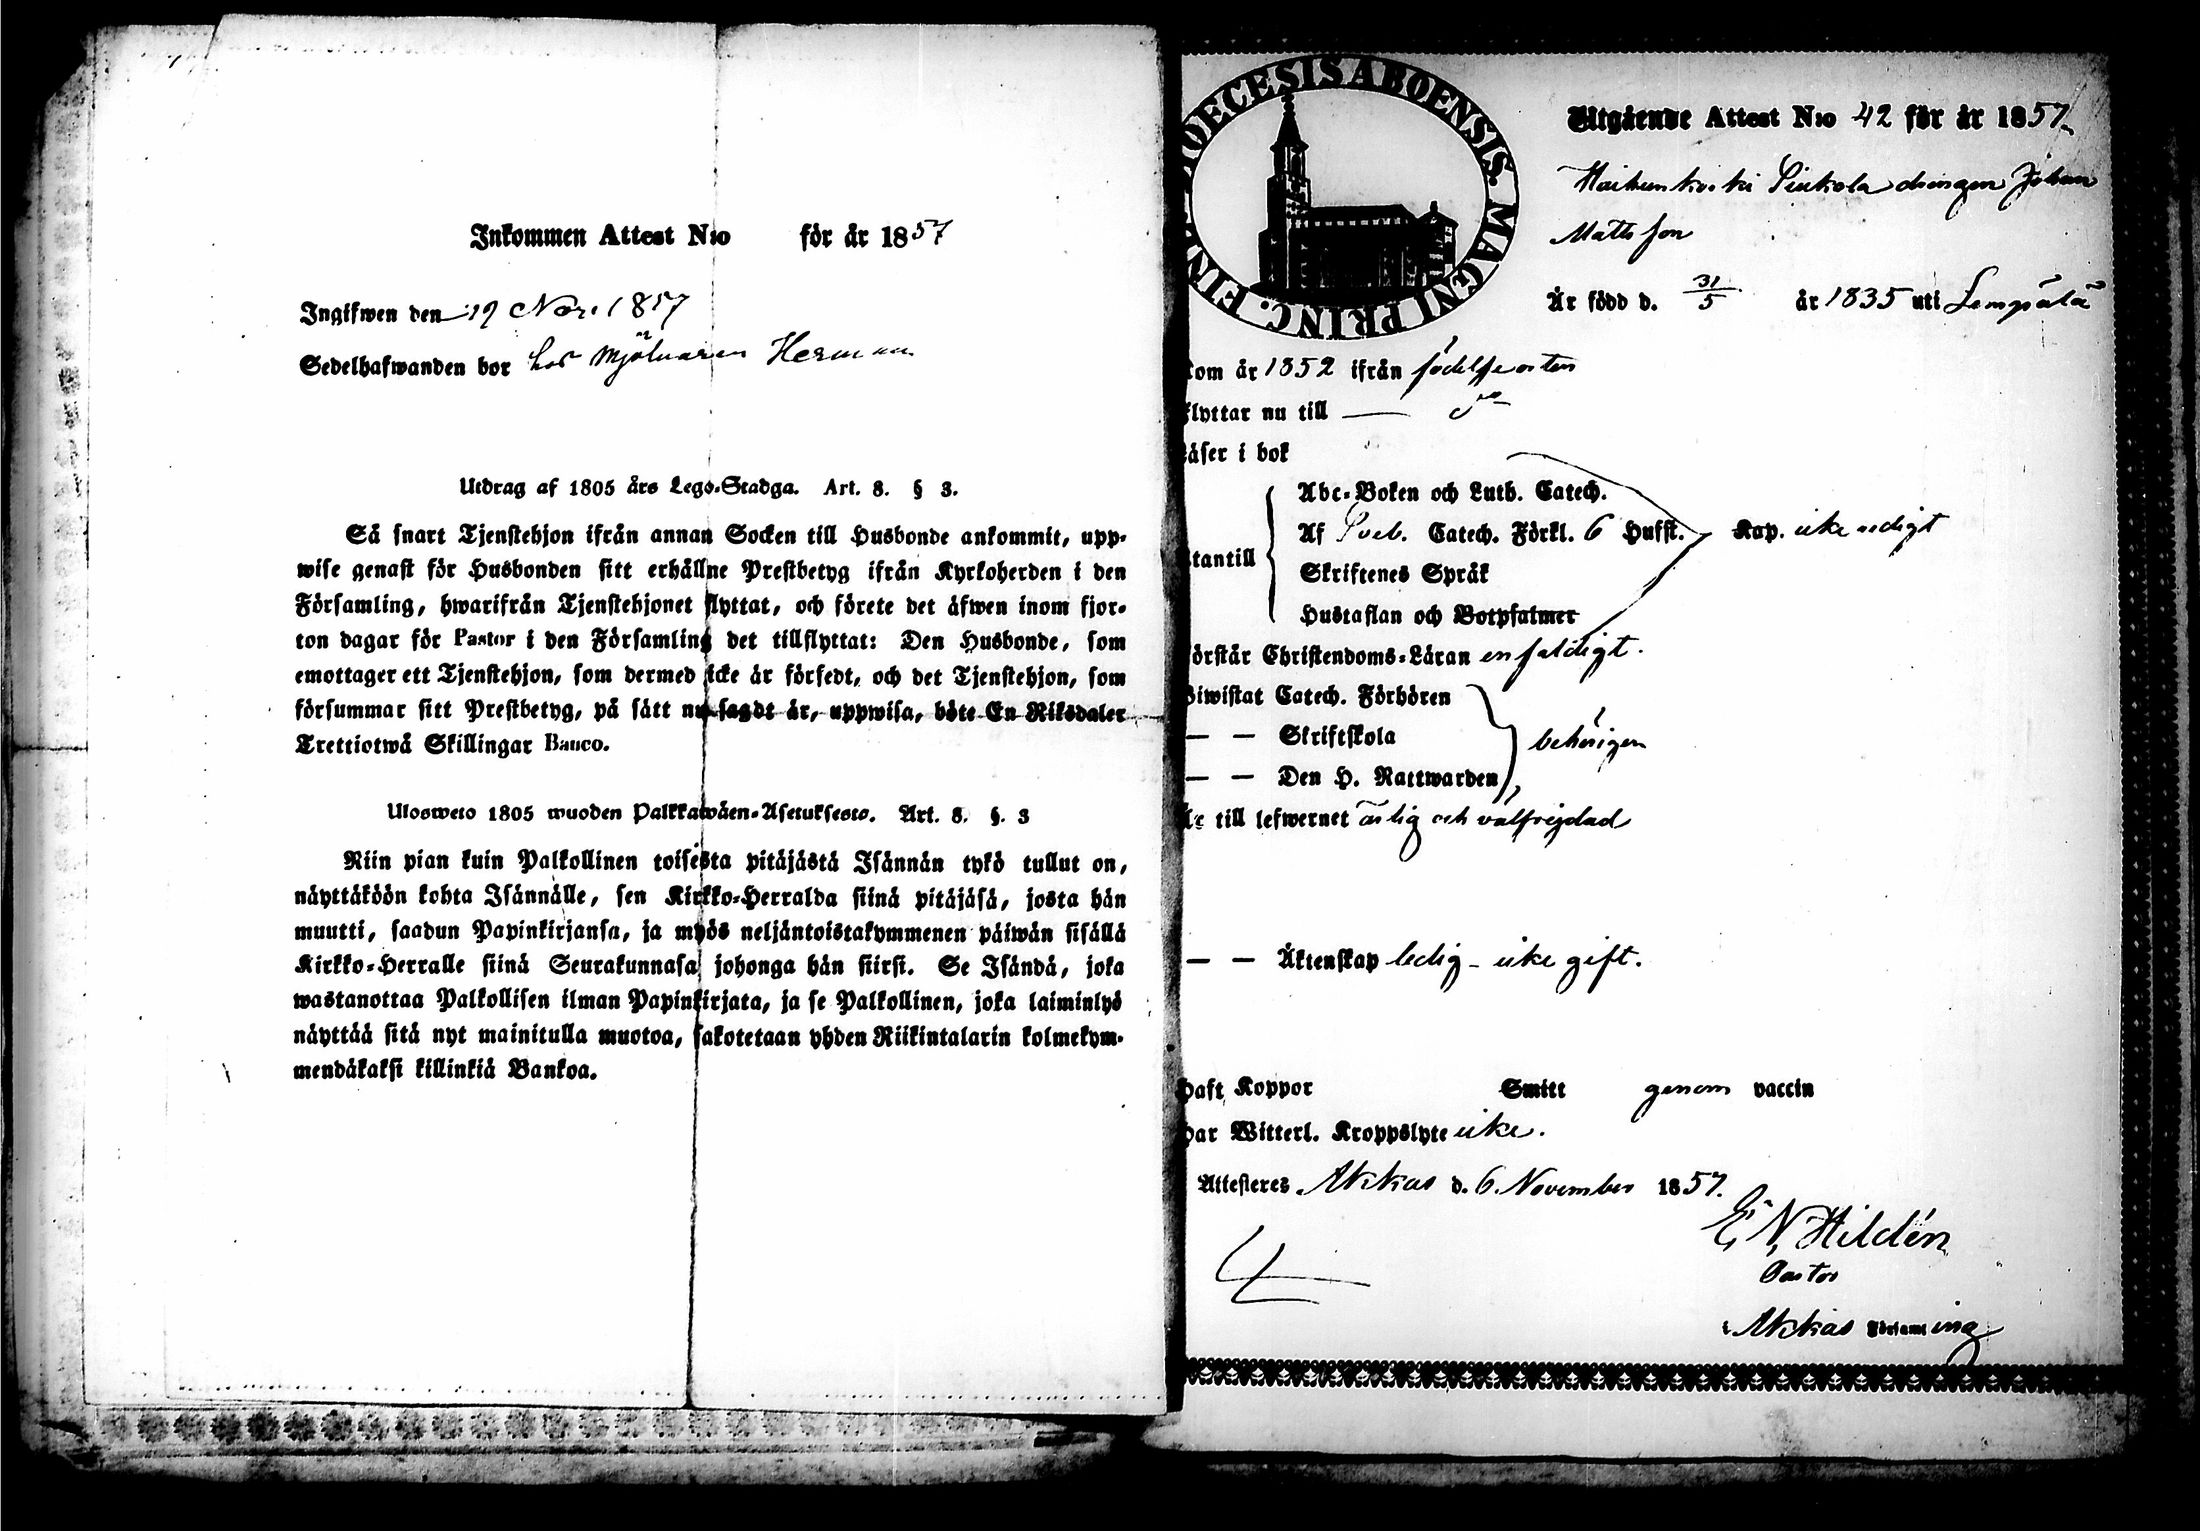 Inkommen Attest N:o för år 1857
Ingifwen den 19 Nov. 1857
Sedelhafwanden bor hos Mjölnaren Herman
Utdrag af 1805 års Lego-Stadga. Art. 8. § 3.
Så snart Tjenstehjon ifrån annan Socken till Husbonde ankommit, upp-
wise genast för Husbonden sitt erhållne Prestbetyg ifrån Kyrkoherden i den
Församling, hwarifrån Tjenstehjonet flyttat, och förete det äfwen inom fjor-
ton dagar för Pastor i den Församling det tillflyttat: Den Husbonde, som
emottager ett Tjenstehjon, som dermed icke är försedt, och det Tjenstehjon, som
försummar sitt Prestbetyg, på sätt nu sagdt är, uppwisa, böte En Riksdaler
Trettiotwå Skillingar Banco.
Ulosweto 1805 wuoden Palkkawäen-Asetuksesta. Art. 8. §. 3
Niin pian kuin Palkollinen toisesta pitäjästä Isännän tykö tullut on,
näyttäköön kohta Isännälle, sen Kirkko-Herralda siinä pitäjäsä, josta hän
muutti, saadun Papinkirjansa, ja myös neljäntoistakymmenen päiwän sisällä
Kirkko-Herralle siinä Seurakunnasa johonga hän siirsi. Se Isändä, joka
wastanottaa Palkollisen ilman Papinkirjata, ja se Palkollinen, joka laiminlyö
näyttää sitä nyt mainitulla muotoa, sakotetaan yhden Riikintalarin kolmekym-
mendäkaksi killinkiä Bankoa.
DIOECESIS ABOENSIS. MAGNI PRINC. FINL.
Utgående Attest N:o 42 för år 1857.
drengen Johan
Mattsson
Är född d. 31/5 år 1835 uti Lempälä
kom år 1852 ifrån födelseorten
flyttar nu till — do
Läser i bok
Abc-Boken och Luth. Catech.
Af Sveb. Catech. Förkl. 6 Hufst. Kap. icke redigt
utantill
Skriftenes Språk
Hustaflan och Botpsalmer
Förstår Christendoms-Läran enfaldigt.
Biwistat Catech. Förhören
— — Skriftskola behörigen
— — Den H. Nattwarden
Är till lefwernet ärlig och välfrejdad
— — Äktenskap ledig - icke gift.
Haft Koppor Smitt genom vaccin
Har Witterl. Kroppslyte icke.
Attesteres Akkas d. 6 November 1857.
E. N. Hildén
Pastor
i Akkas Församling